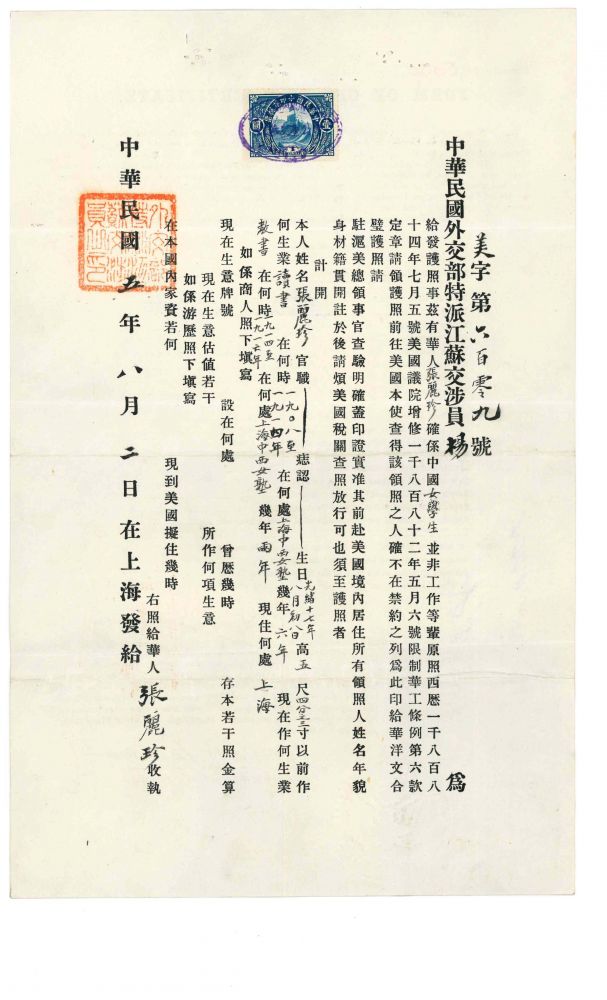 美字第六百零九號
中華民國外交部特派江蘇交涉員楊 為
給發護照事茲有華人張麗珍確係中國女學生並非工作等輩原照西歷一千八百八
十四年七月五號美國議院增修一千八百八十二年五月六號限制華工條例第六款
定章請領護照前往美國本使查得該領照之人確不在禁約之列為此印給華洋文合
璧護照請
駐滬美總領事官查驗明確蓋印證實准其前赴美國境內居住所有領照人姓名年貌
身材籍貫開註於後請煩美國稅關查照放行可也須至護照者
計開
本人姓名張麗珍 官職 痣認 生日光緒十七年八月初八日高五尺四分之三寸以前作
何生業讀書 在何時一九〇八至一九一四年 在何處上海中西女塾幾年六年 現在作何生業
教書 在何時一九一四至一九一六年 在何處上海中西女塾 幾年兩年 現住何處上海
如係商人照下填寫
現在生意牌號 設在何處 曾歷幾時 存本若干照金算
現在生意估值若干 所作何項生意
如係游歷照下填寫
在本國內家資若何 現到美國擬住幾時
右照給華人張麗珍收執
中華民國五年八月二日在上海發給